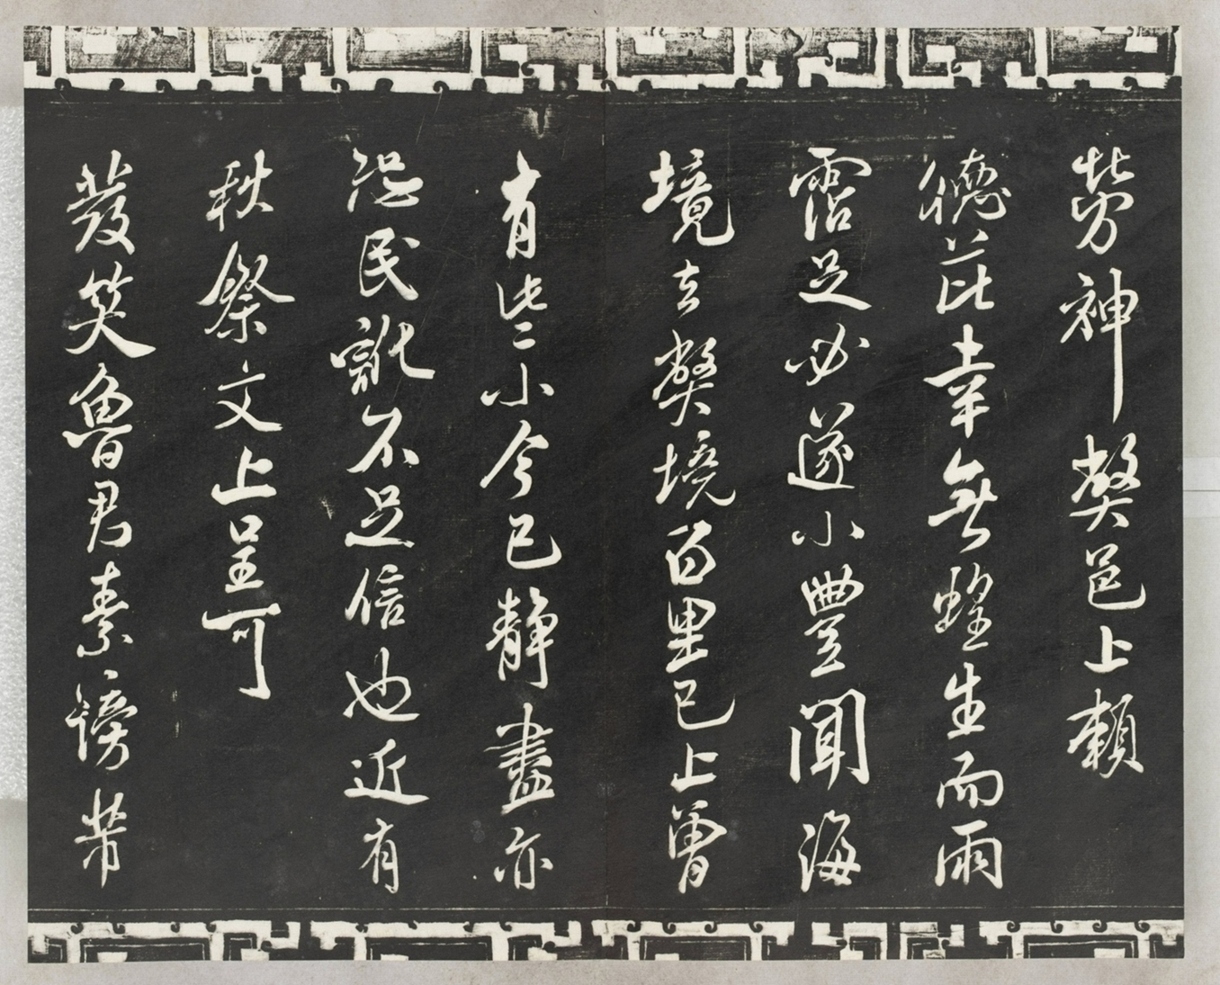 勞神弊邑上賴
德芘幸無蝗生而雨
霑足必遂小豐聞海
境去弊境百里已上曾
有些小今已靜盡亦
恐民訛不足信也近有
秋祭文上呈可
發笑魯君素謗芾